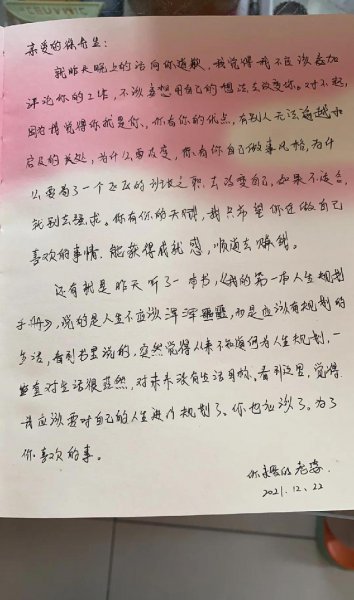 亲爱的徐先生：
就昨天晚上的话向你道歉，我觉得我不应该参加
评论你的工作，不该妄想用自己的想法去改变你。对不起，
因为我觉得你就是你，你有你的优点，有别人无法逾越和
启及的长处，为什么要改变，你有你自己做事风格，为什
么要为了一个区区的 之职去改变自己，如果不适合，
就别去强求。你有你的天赋，我只希望你在做自己
喜欢的事情，能获得成就感，顺道去赚钱。
还有就是昨天听了一本书，《我的第一本人生规划
手册》，说的是人生不应该浑浑噩噩，而是应该有规划的
生活，看到书里说的，突然觉得从来不知道何为人生规划，一
直对生活很茫然，对未来没有生活目标。看到这里，觉得
我应该要对自己的人生进行规划了。你也应该了。为了
你喜欢的事。
你亲爱的老婆
2021.12.22